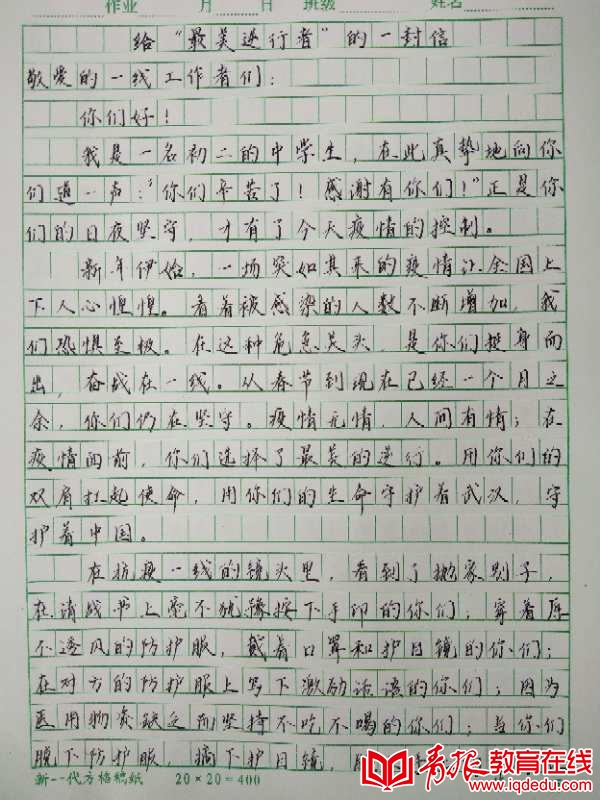 作业 月 日 班级 姓名
给“最美逆行者”的一封信
敬爱的一线工作者们：
你们好！
我是一名初二的中学生，在此真挚地向你
们道一声：“你们辛苦了！感谢有你们！”正是你
们的日夜坚守，才有了今天疫情的控制。
新年伊始，一场突如其来的疫情让全国上
下人心惶惶。看着被感染的人数不断增加，我
们恐惧至极。在这种危急关头，是你们挺身而
出，奋战在一线。从春节到现在已经一个月之
余，你们仍在坚守。疫情无情，人间有情；在
疫情面前，你们选择了最美的逆行。用你们的
双肩扛起使命，用你们的生命守护着武汉，守
护着中国。
在抗疫一线的镜头里，看到了抛家别子，
在请战书上毫不犹豫按下手印的你们；穿着厚
不透风的防护服，戴着口罩和护目镜的你们；
在对方的防护服上写下激励话语的你们；因为
医用物资缺乏而坚持不吃不喝的你们；当你们
脱下防护服，摘下护目镜，
新一代方格稿纸 20×20=400
青报教育在线
www.iqdedu.com